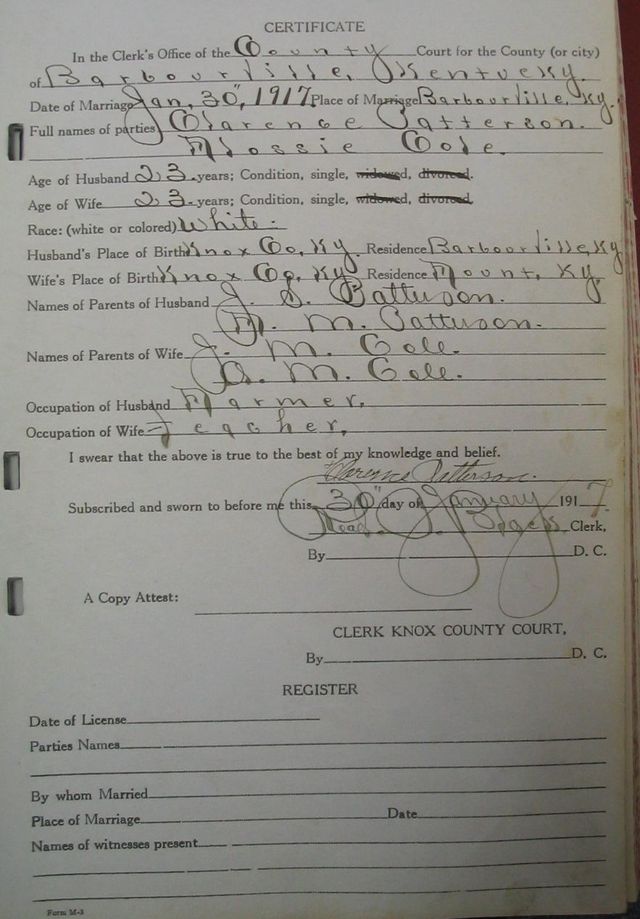 CERTIFICATE
In the Clerk's Office of the County Court for the County (or city)
of Barbourville, Kentucky.
Date of Marriage Jan, 30", 1917 Place of Marriage Barbourville, Ky.
Full names of parties Clarence Patterson.
Flossie Cole.
Age of Husband 23 years; Condition, single, widowed, divorced.
Age of Wife 23 years; Condition, single, widowed, divorced.
Race: (white or colored) White.
Husband's Place of Birth Knox Co, Ky. Residence Barbourville, Ky
Wife's Place of Birth Knox Co, Ky. Residence Mount, Ky.
Names of Parents of Husband J. S. Patterson.
M. M. Patterson.
Names of Parents of Wife J. M. Cole.
A. M. Cole.
Occupation of Husband Farmer.
Occupation of Wife Teacher,
I swear that the above is true to the best of my knowledge and belief.
Clarence Patterson.
Subscribed and sworn to before me this 30" day of January 1917.
Clerk,
By D. C.
A Copy Attest:
CLERK KNOX COUNTY COURT,
By D. C.
REGISTER
Date of License
Parties Names
By whom Married
Place of Marriage Date
Names of witnesses present
Form M-3